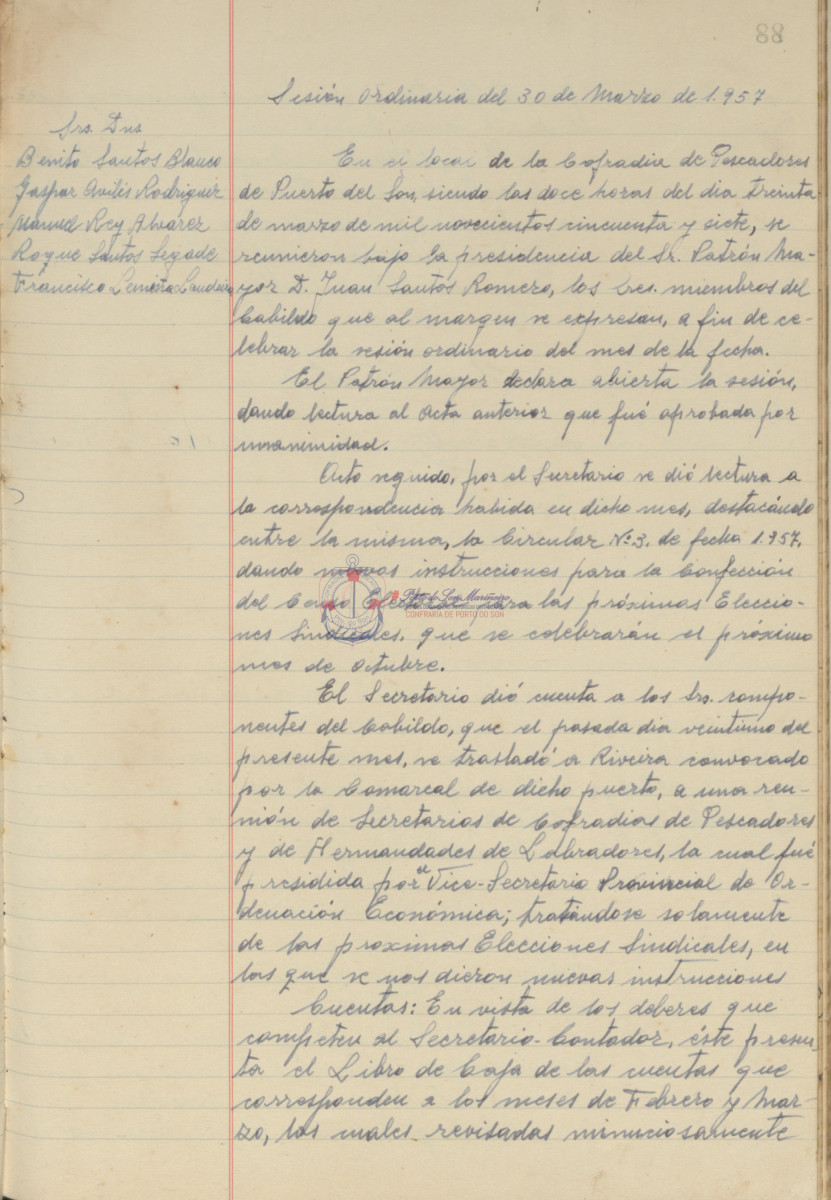 88
Sesión Ordinaria del 30 de Marzo de 1.957
Srs. Dns
Benito Santos Blanco
Gaspar Avilés Rodriguez
Manuel Rey Alvarez
Roque Santos Segade
Francisco
En el local de la Cofradia de Pescadores
de Puerto del Son, siendo las doce horas del dia treinta
de marzo de mil novecientos cincuenta y siete, se
reunieron bajo la presidencia del Sr. Patrón Ma-
yor D. Juan Santos Romero, los sres. miembros del
Cabildo que al margen se expresan, a fin de ce-
lebrar la sesión ordinario del mes de la fecha.
El Patrón Mayor declara abierta la sesión,
dando lectura al Acta anterior que fué aprobada por
unanimidad.
Acto seguido, por el Secretario se dió lectura a
la correspondencia habida en dicho mes, destacándo
entre la misma, la Circular Nº 3. de fecha 1.957,
dando nuevas instrucciones para la Confección
del Censo Electoral para las próximas Eleccio-
nes Sindicales. que se celebrarán el próximo
mes de Octubre.
CONFRARIA DE PORTO DO SON
El Secretario dió cuenta a los Srs. compo-
nentes del Cabildo, que el pasada dia veintiuno del
presente mes, se trasladó a Riveira convocado
por la Comarcal de dicho puerto, a una reu-
nión de Secretarios de Cofradias de Pescadores
y de Hermandades de Labradores, la cual fué
presidida por el Vice-Secretario Provincial de Or-
denación Económica; tratándose solamente
de las proximas Elecciones Sindicales, en
las que se nos dieron nuevas instrucciones
Cuentas: En vista de los deberes que
competen al Secretario-Contador, éste presen-
ta el Libro de Caja de las cuentas que
corresponden a los meses de Febrero y Mar-
zo, las cuales revisadas minuciosamente